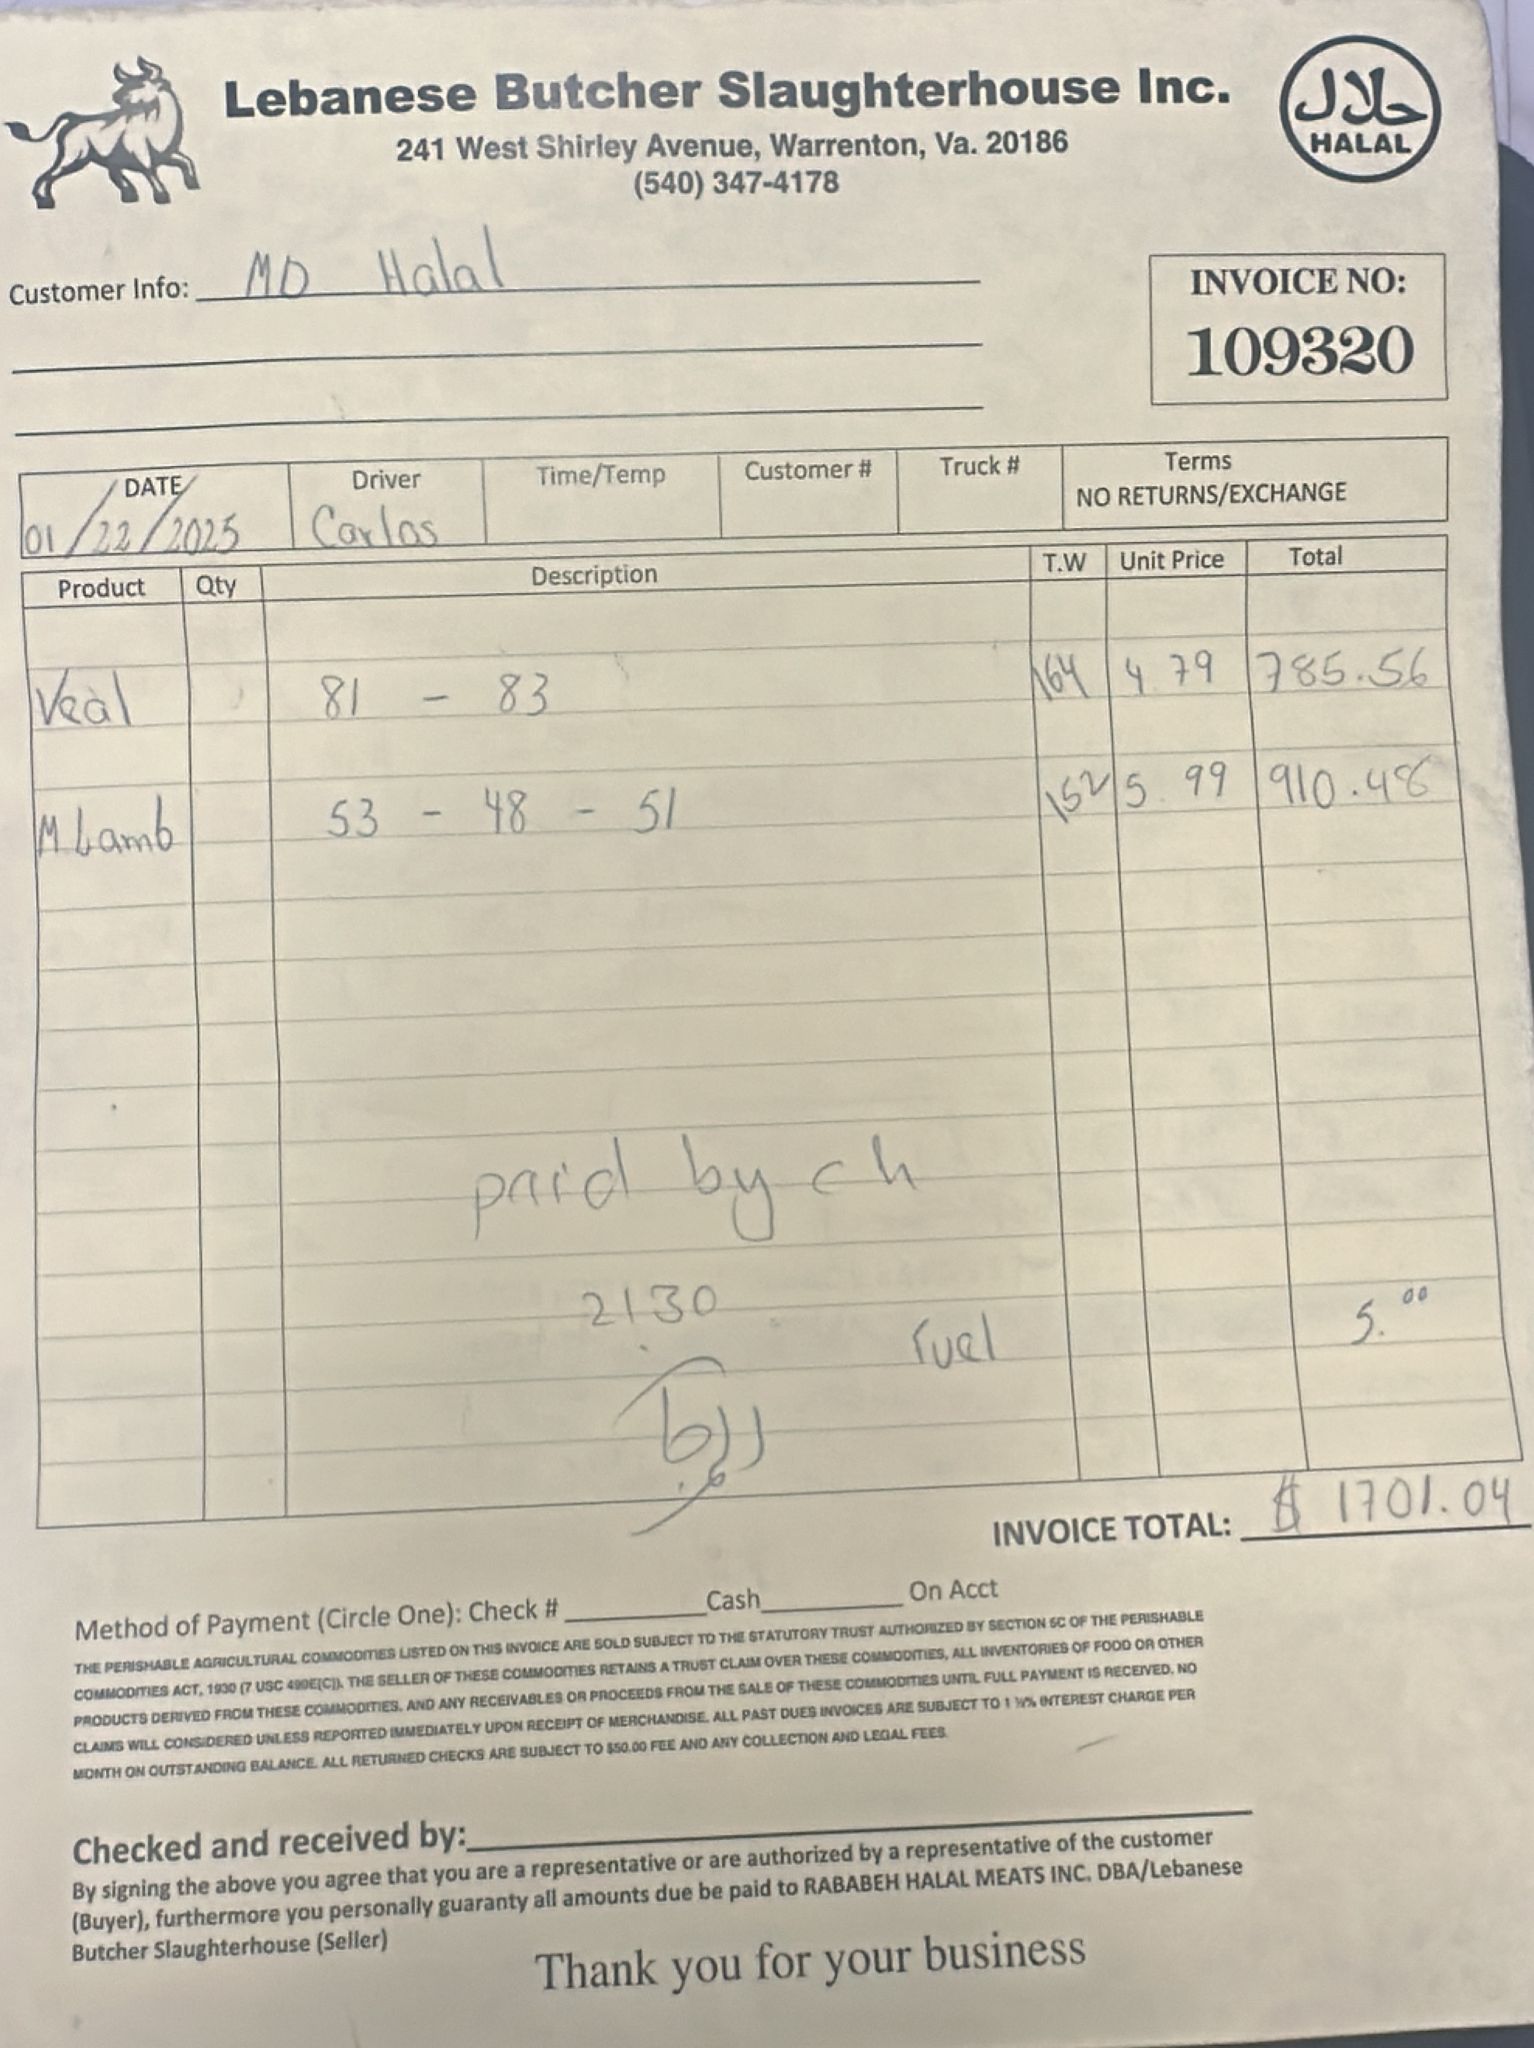 Lebanese Butcher Slaughterhouse Inc.
241 West Shirley Avenue, Warrenton, Va. 20186
(540) 347-4178
حلال
HALAL
Customer Info: MD Halal
INVOICE NO:
109320
DATE Driver Time/Temp Customer # Truck # Terms
NO RETURNS/EXCHANGE
01/22/2025 Carlos
Product Qty Description T.W Unit Price Total
Veal 81 - 83 164 4 79 785.56
M Lamb 53 - 48 - 51 152 5 99 910.48
paid by ch
2130
Fuel 5.00
INVOICE TOTAL: $ 1701.04
Method of Payment (Circle One): Check # Cash On Acct
THE PERISHABLE AGRICULTURAL COMMODITIES LISTED ON THIS INVOICE ARE SOLD SUBJECT TO THE STATUTORY TRUST AUTHORIZED BY SECTION 5C OF THE PERISHABLE
COMMODITIES ACT, 1930 (7 USC 499E(C)). THE SELLER OF THESE COMMODITIES RETAINS A TRUST CLAIM OVER THESE COMMODITIES, ALL INVENTORIES OF FOOD OR OTHER
PRODUCTS DERIVED FROM THESE COMMODITIES. AND ANY RECEIVABLES OR PROCEEDS FROM THE SALE OF THESE COMMODITIES UNTIL FULL PAYMENT IS RECEIVED. NO
CLAIMS WILL CONSIDERED UNLESS REPORTED IMMEDIATELY UPON RECEIPT OF MERCHANDISE. ALL PAST DUES INVOICES ARE SUBJECT TO 1 ½% INTEREST CHARGE PER
MONTH ON OUTSTANDING BALANCE. ALL RETURNED CHECKS ARE SUBJECT TO $50.00 FEE AND ANY COLLECTION AND LEGAL FEES.
Checked and received by:
By signing the above you agree that you are a representative or are authorized by a representative of the customer
(Buyer), furthermore you personally guaranty all amounts due be paid to RABABEH HALAL MEATS INC. DBA/Lebanese
Butcher Slaughterhouse (Seller)
Thank you for your business